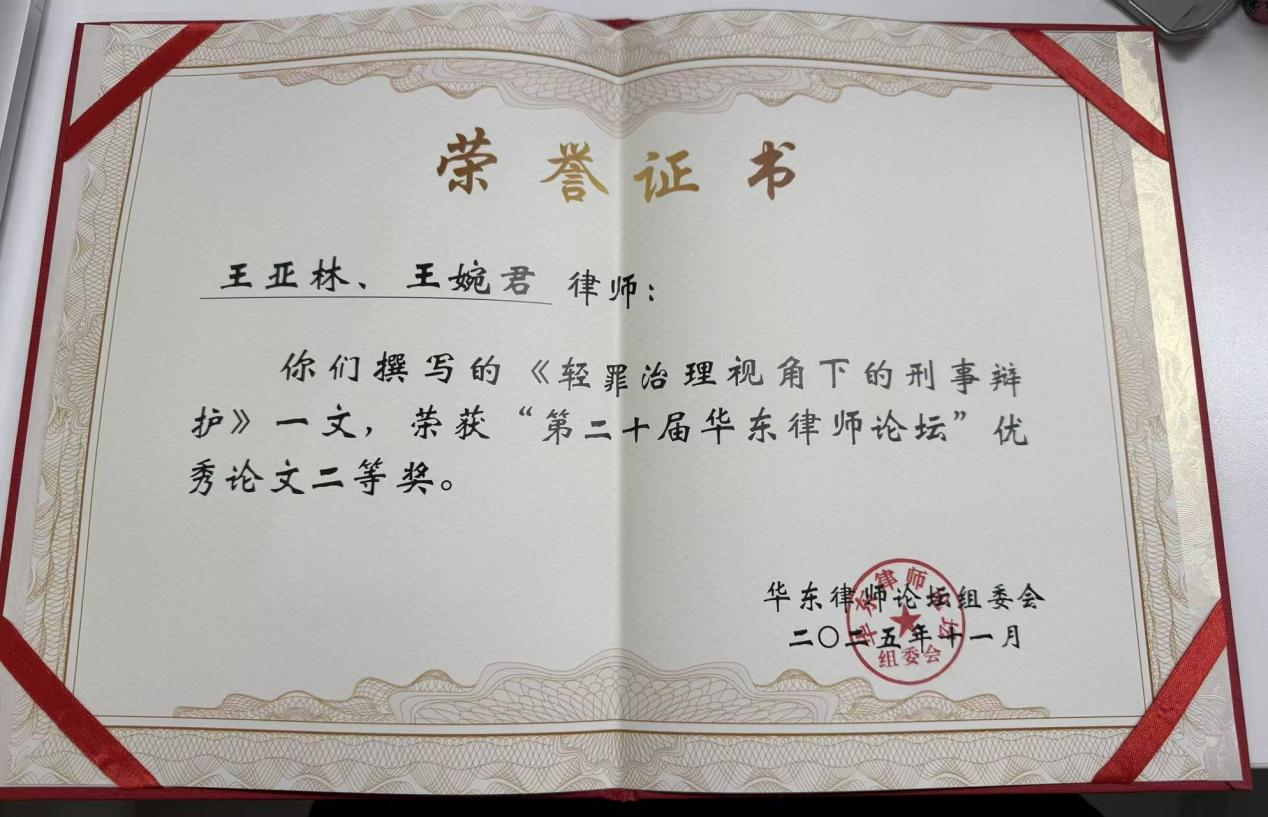 荣誉证书
王亚林、王婉君 律师：
你们撰写的《轻罪治理视角下的刑事辩
护》一文，荣获“第二十届华东律师论坛”优
秀论文二等奖。
华东律师论坛组委会
二〇二五年十一月
华东律师论坛
组委会